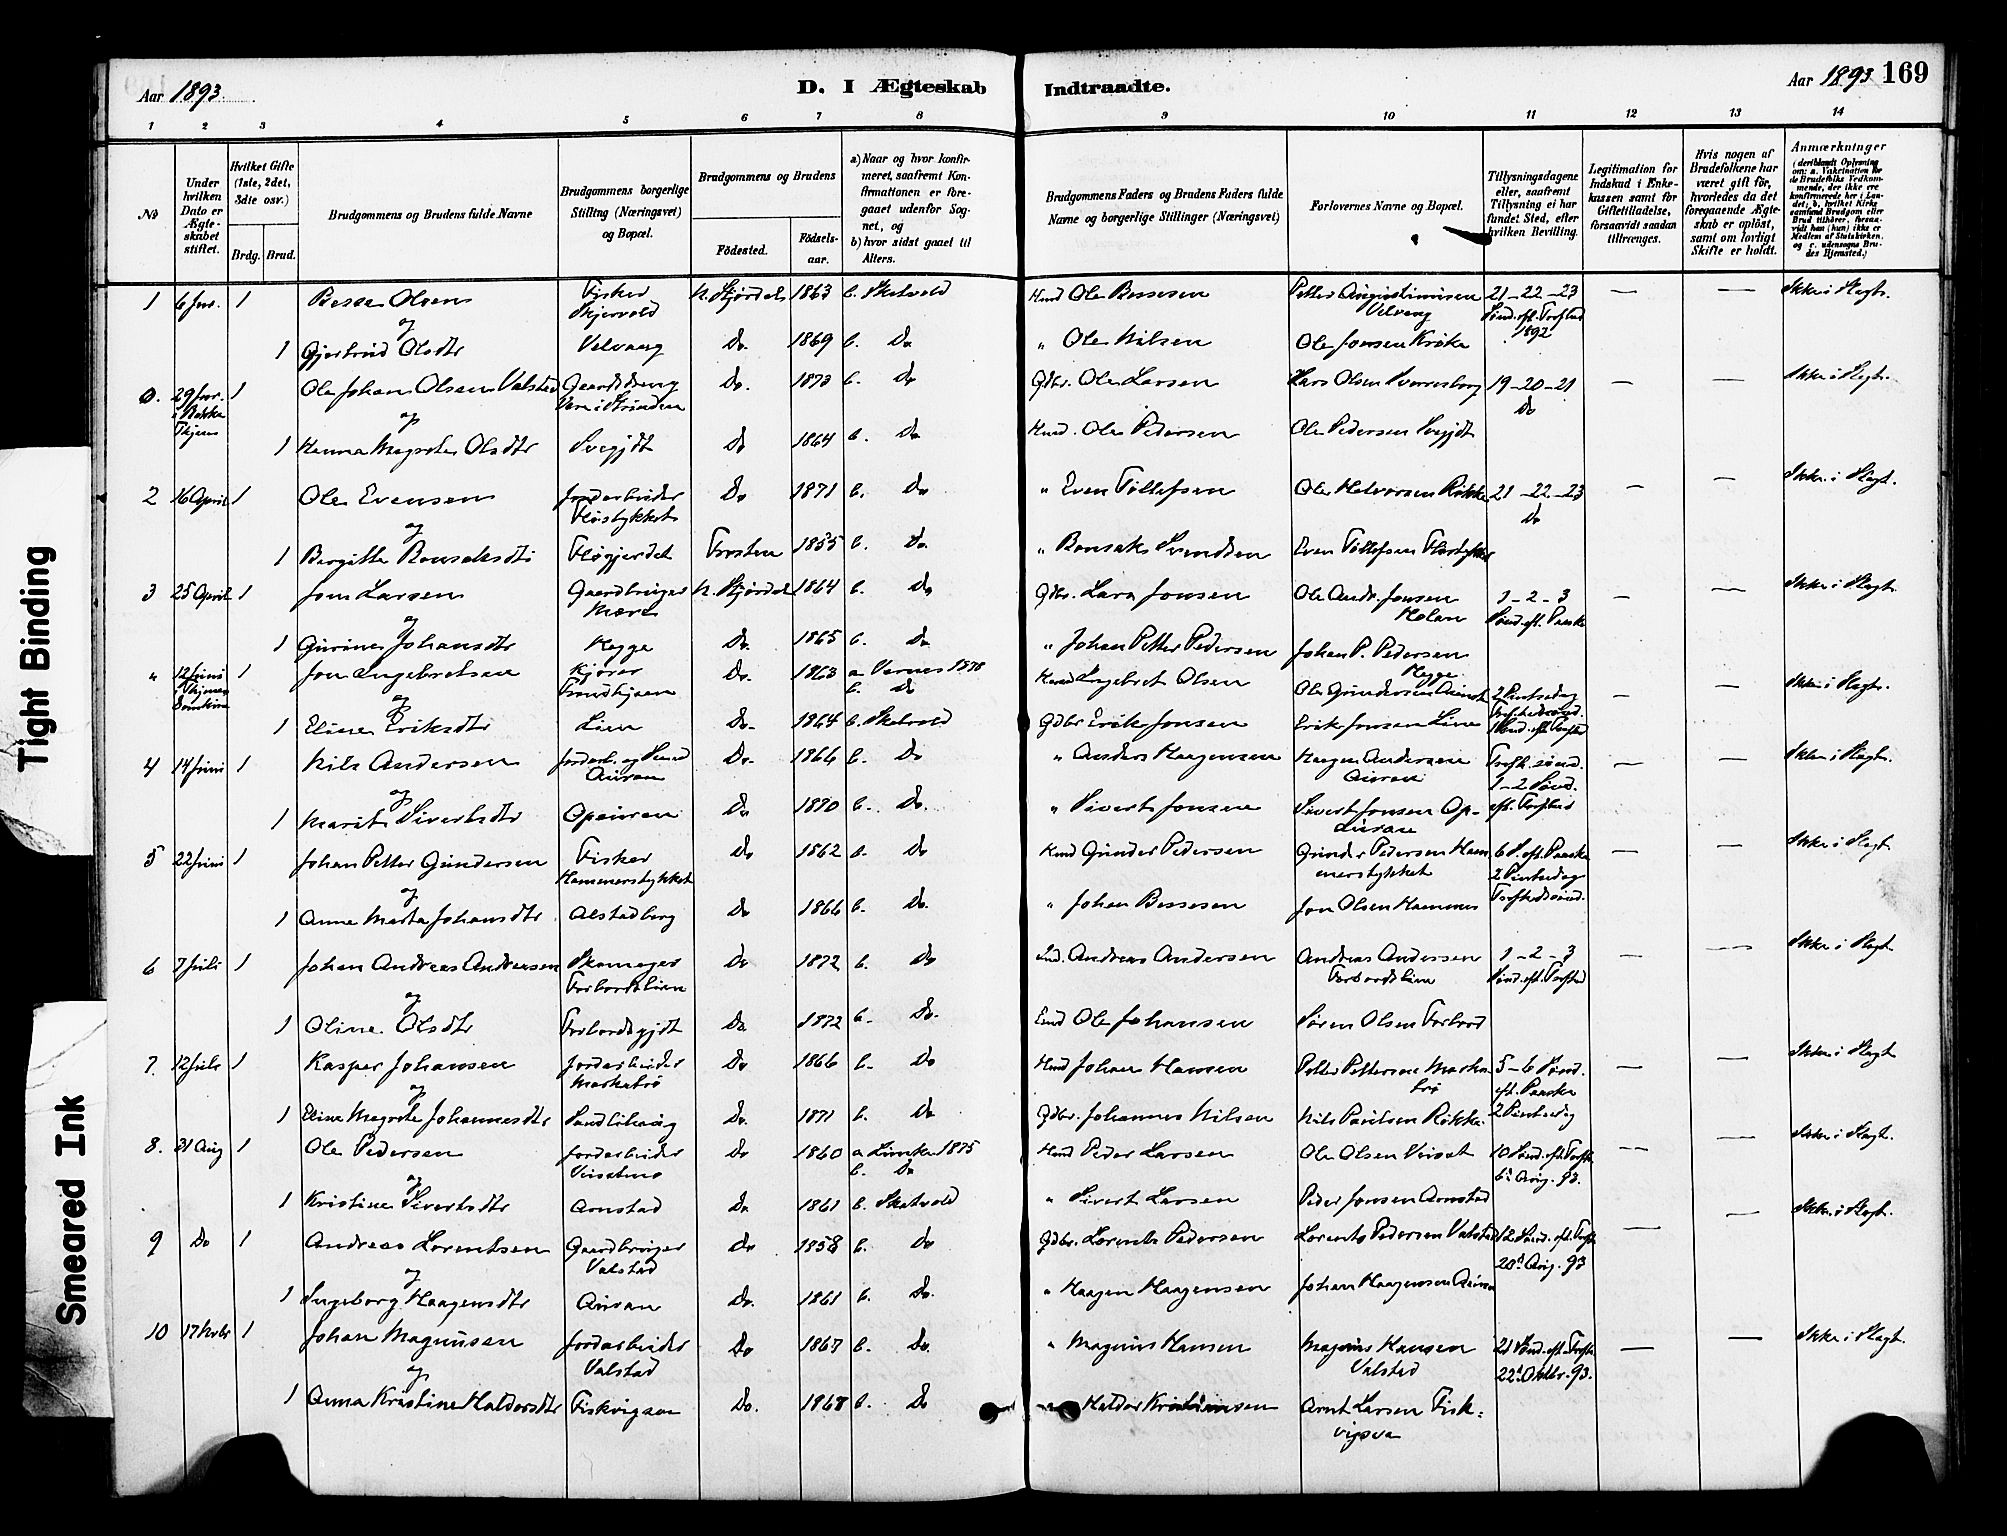 Aar 1893
D. I Ægteskab
Indtraadte.
Aar 1893
169
1 2 3 4 5 6 7 8 9 10 11 12 13 14
No
Under hvilken Dato er Ægteskabet stiftet.
Hvilket Gifte (1ste, 2det, 3die osv.)
Brdg. Brud.
Brudgommens og Brudens fulde Navne
Brudgommens borgerlige Stilling (Næringsvei) og Bopæl.
Brudgommens og Brudens
Födested.
Födsels-aar.
a) Naar og hvor konfirmeret, saafremt Konfirmationen er foregaaet udenfor Sognet, og
b) hvor sidst gaaet til Alters.
Brudgommens Faders og Brudens Faders fulde Navne og borgerlige Stillinger (Næringsvei)
Forlovernes Navne og Bopæl.
Tillysningsdagene eller, saafremt Tillysning ei har fundet Sted, efter hvilken Bevilling.
Legitimation for Indskud i Enkekassen samt for Giftetilladelse, forsaavidt saadan tiltrænges.
Hvis nogen af Brudefolkene har været gift för, hvorledes da det foregaaende Ægteskab er oplöst, samt om lovligt Skifte er holdt.
Anmærkninger
(deriblandt Oplysning om: a. Vakcination for de Brudefolks Vedkommende, der ikke ere konfirmerede her i Landet; b. hvilket Kirkesamfund Brudgom eller Brud tilhører, forsaavidt han (hun) ikke er Medlem af Statskirken, og c. udensogns Brudes Hjemsted.)
1 6 Jnr. 1 Besse Olsen Fisker Skjervold N. Stjørdal 1863 b. Skatvold Husmd Ole Bessesen Petter Augustinusen Velvang 21-22-23 Sønd. eft. Trefold 1892 — — Ikke i Slægt.
og
1 Gjertrud Olsdtr Velvang Do. 1869 b. Do " Ole Nilsen Ole Jonsen Krøke
0. 29 Jnr. 1 Ole Johan Olsen Valstad Gaarddreng Do. 1873 b. Do Gdbr. Ole Larsen Lars Olsen 19-20-21 Do — — Ikke i Slægt.
og
1 Hanna Magrete Olsdtr Do 1864 b. Do Husmd. Ole Pedersen Ole Pedersen
2 16 April 1 Ole Evensen Jordarbeider Fløstykket Do 1871 b. Do " Even Tollefsen Ole Halvorsen Røkke 21-22-23 Do — — Ikke i Slægt.
og
1 Bergitte Bonsaksdtr Fløgjerdet Frosten 1855 b. Do. " Bonsak Svendsen Even Tollefsen Fløstykket
3 25 April 1 Jon Larsen Gaardbruger Mære N. Stjørdal 1864 b. Do Gdbr. Lars Jonsen Ole Andr. Jonsen Holan 1-2-3 Sønd. eft. Paaske — — Ikke i Slægt.
og
1 Gurine Johansdtr Hegge Do. 1865 b. Do " Johan Petter Pedersen Johan P. Pedersen Hegge
" 12 Juni 1 Jon Ingebretsen Kjører Trondhjem Do. 1863 a. Værnes 1878 b. Do Husmd Ingebret Olsen Ole Gundersen 2 Pintsedag Trefoldsønd. 1 Sønd. eft. Trefold — — Ikke i Slægt.
og
1 Eline Eriksdtr Lien Do. 1864 b. Skatvold Gdbr Erik Jonsen Erik Jonsen Lien
4 14 Juni 1 Nils Andersen Jordarb. og Husmd Auran Do. 1866 b. Do " Anders Haagensen Haagen Andersen Auran Trefh. sønd. 1-2 Sønd. eft. Trefold — — Ikke i Slægt.
og
1 Marit Sivertsdtr Opauran Do 1870 b. Do. " Sivert Jonsen Sivert Jonsen Op-auran
5 22 Juni 1 Johan Petter Gundersen Fisker Hammerstykket Do 1862 b. Do Husmd Gunder Pedersen Gunder Pedersen Hammerstykket 6 S. eft. Paaske 2 Pintsedag Trefheds sønd. — — Ikke i Slægt
og
1 Anne Marta Johansdtr Alstadberg Do 1866 b. Do. " Johan Bessesen Jon Olsen Hammer
6 7 Juli 1 Johan Andreas Andreasen Skomager Forbordslien Do 1872 b. Do Ind. Andreas Andersen Andreas Andersen Forbordslien 1-2-3 Sønd. eft. Trefold — — Ikke i Slægt
og
1 Oline Olsdtr Forbordsgjdt Do 1872 b. Do. Husmd Ole Johansen Søren Olsen Forbord
7. 12 Juli 1 Kasper Johansen Jordarbeider Markabrø Do 1866 b. Do Husmd Johan Hansen Petter Pettersen Markabrø 5-6 Sønd. eft. Paaske 2 Pintsedag — — Ikke i Slægt
og
1 Eline Magrete Johannesdtr Do. 1871 b. Do Gdbr. Johannes Nilsen Nils Paulsen Røkke
8. 31 Aug 1 Ole Pedersen Jordarbeider Do 1860 a. 1875 b. Do Husmd Peder Larsen Ole Olsen 10 Sønd. eft. Trefh. 6te Aug. 93. — — Ikke i Slægt.
og
1 Kristine Sivertsdtr Arnstad Do 1861 b. Skatvold " Sivert Larsen Peder Jonsen Arnstad
9 Do 1 Andreas Lorentsen Gaardbruger Valstad Do 1858 b. Do Gdbr. Lorents Pedersen Lorents Pedersen Valstad 12 Sønd. eft. Trefh. 20d Aug. 93 — — Ikke i Slægt.
og
1 Ingeborg Haagensdtr Auran Do. 1861 b. Do. " Haagen Haagensen Johan Haagensen Auran
10 17 Nvbr 1 Johan Magnusen Jordarbeider Valstad Do 1867 b. Do. " Magnus Hansen Magnus Hansen Valstad 21 Sønd. eft. Trefh. 22d Oktbr. 93. — — Ikke i Slægt.
og
1 Anna Kristine Haldorsdtr Fiskvigaen Do. 1868 b. Do " Haldor Kristiansen Arnt Larsen Fiskvigaen
Tight Binding
Smeared Ink